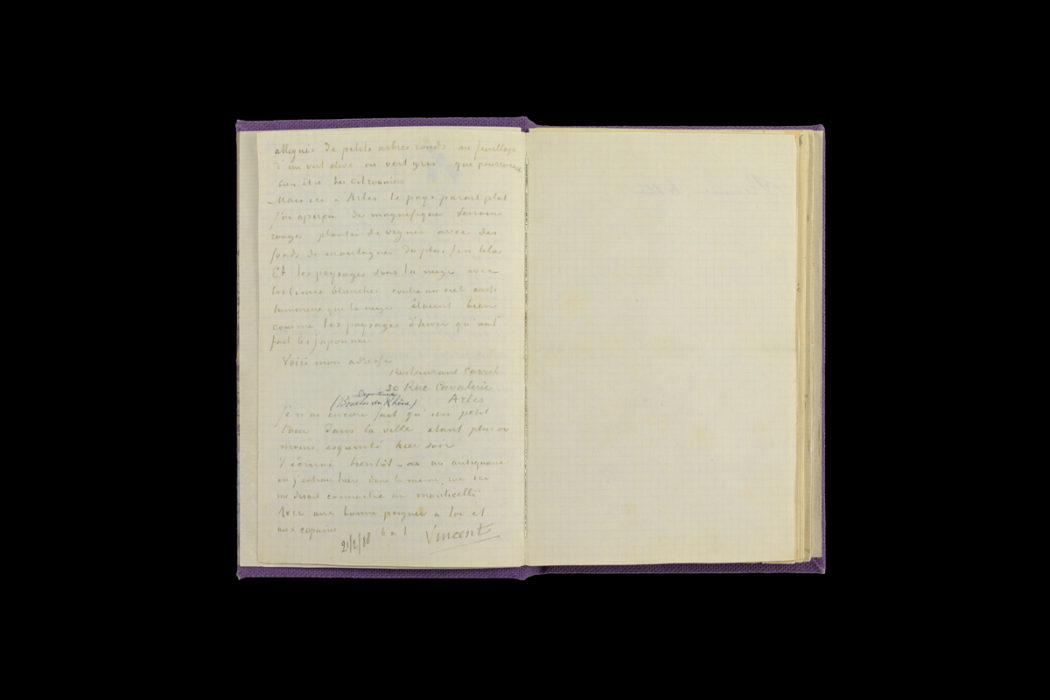 allignés de petits arbres ronds au feuillage
d'un vert olive ou vert gris que
bien être des citronniers
Mais ici à Arles le pays parait plat
J'ai aperçu de magnifiques terrains
rouges plantés de vignes avec des
fonds de montagnes du plus fin lilas
Et les paysages sous la neige avec
les cimes blanches contre un ciel aussi
lumineux que la neige étaient bien
comme les paysages d'hiver qu'ont
fait les japonais
Voici mon adresse
restaurant Carrel
30 Rue Cavalerie
Arles
(Bouches du Rhône)
Je n'ai encore fait qu'un petit
tour dans la ville étant plus ou
moins esquinté hier soir
t'écrirai bientôt – un antiquaire
où j'entrais hier dans la même rue ici
me disait connaitre un monticelli
Avec une bonne poignée à toi et
aux copains t à t Vincent
21/2/88